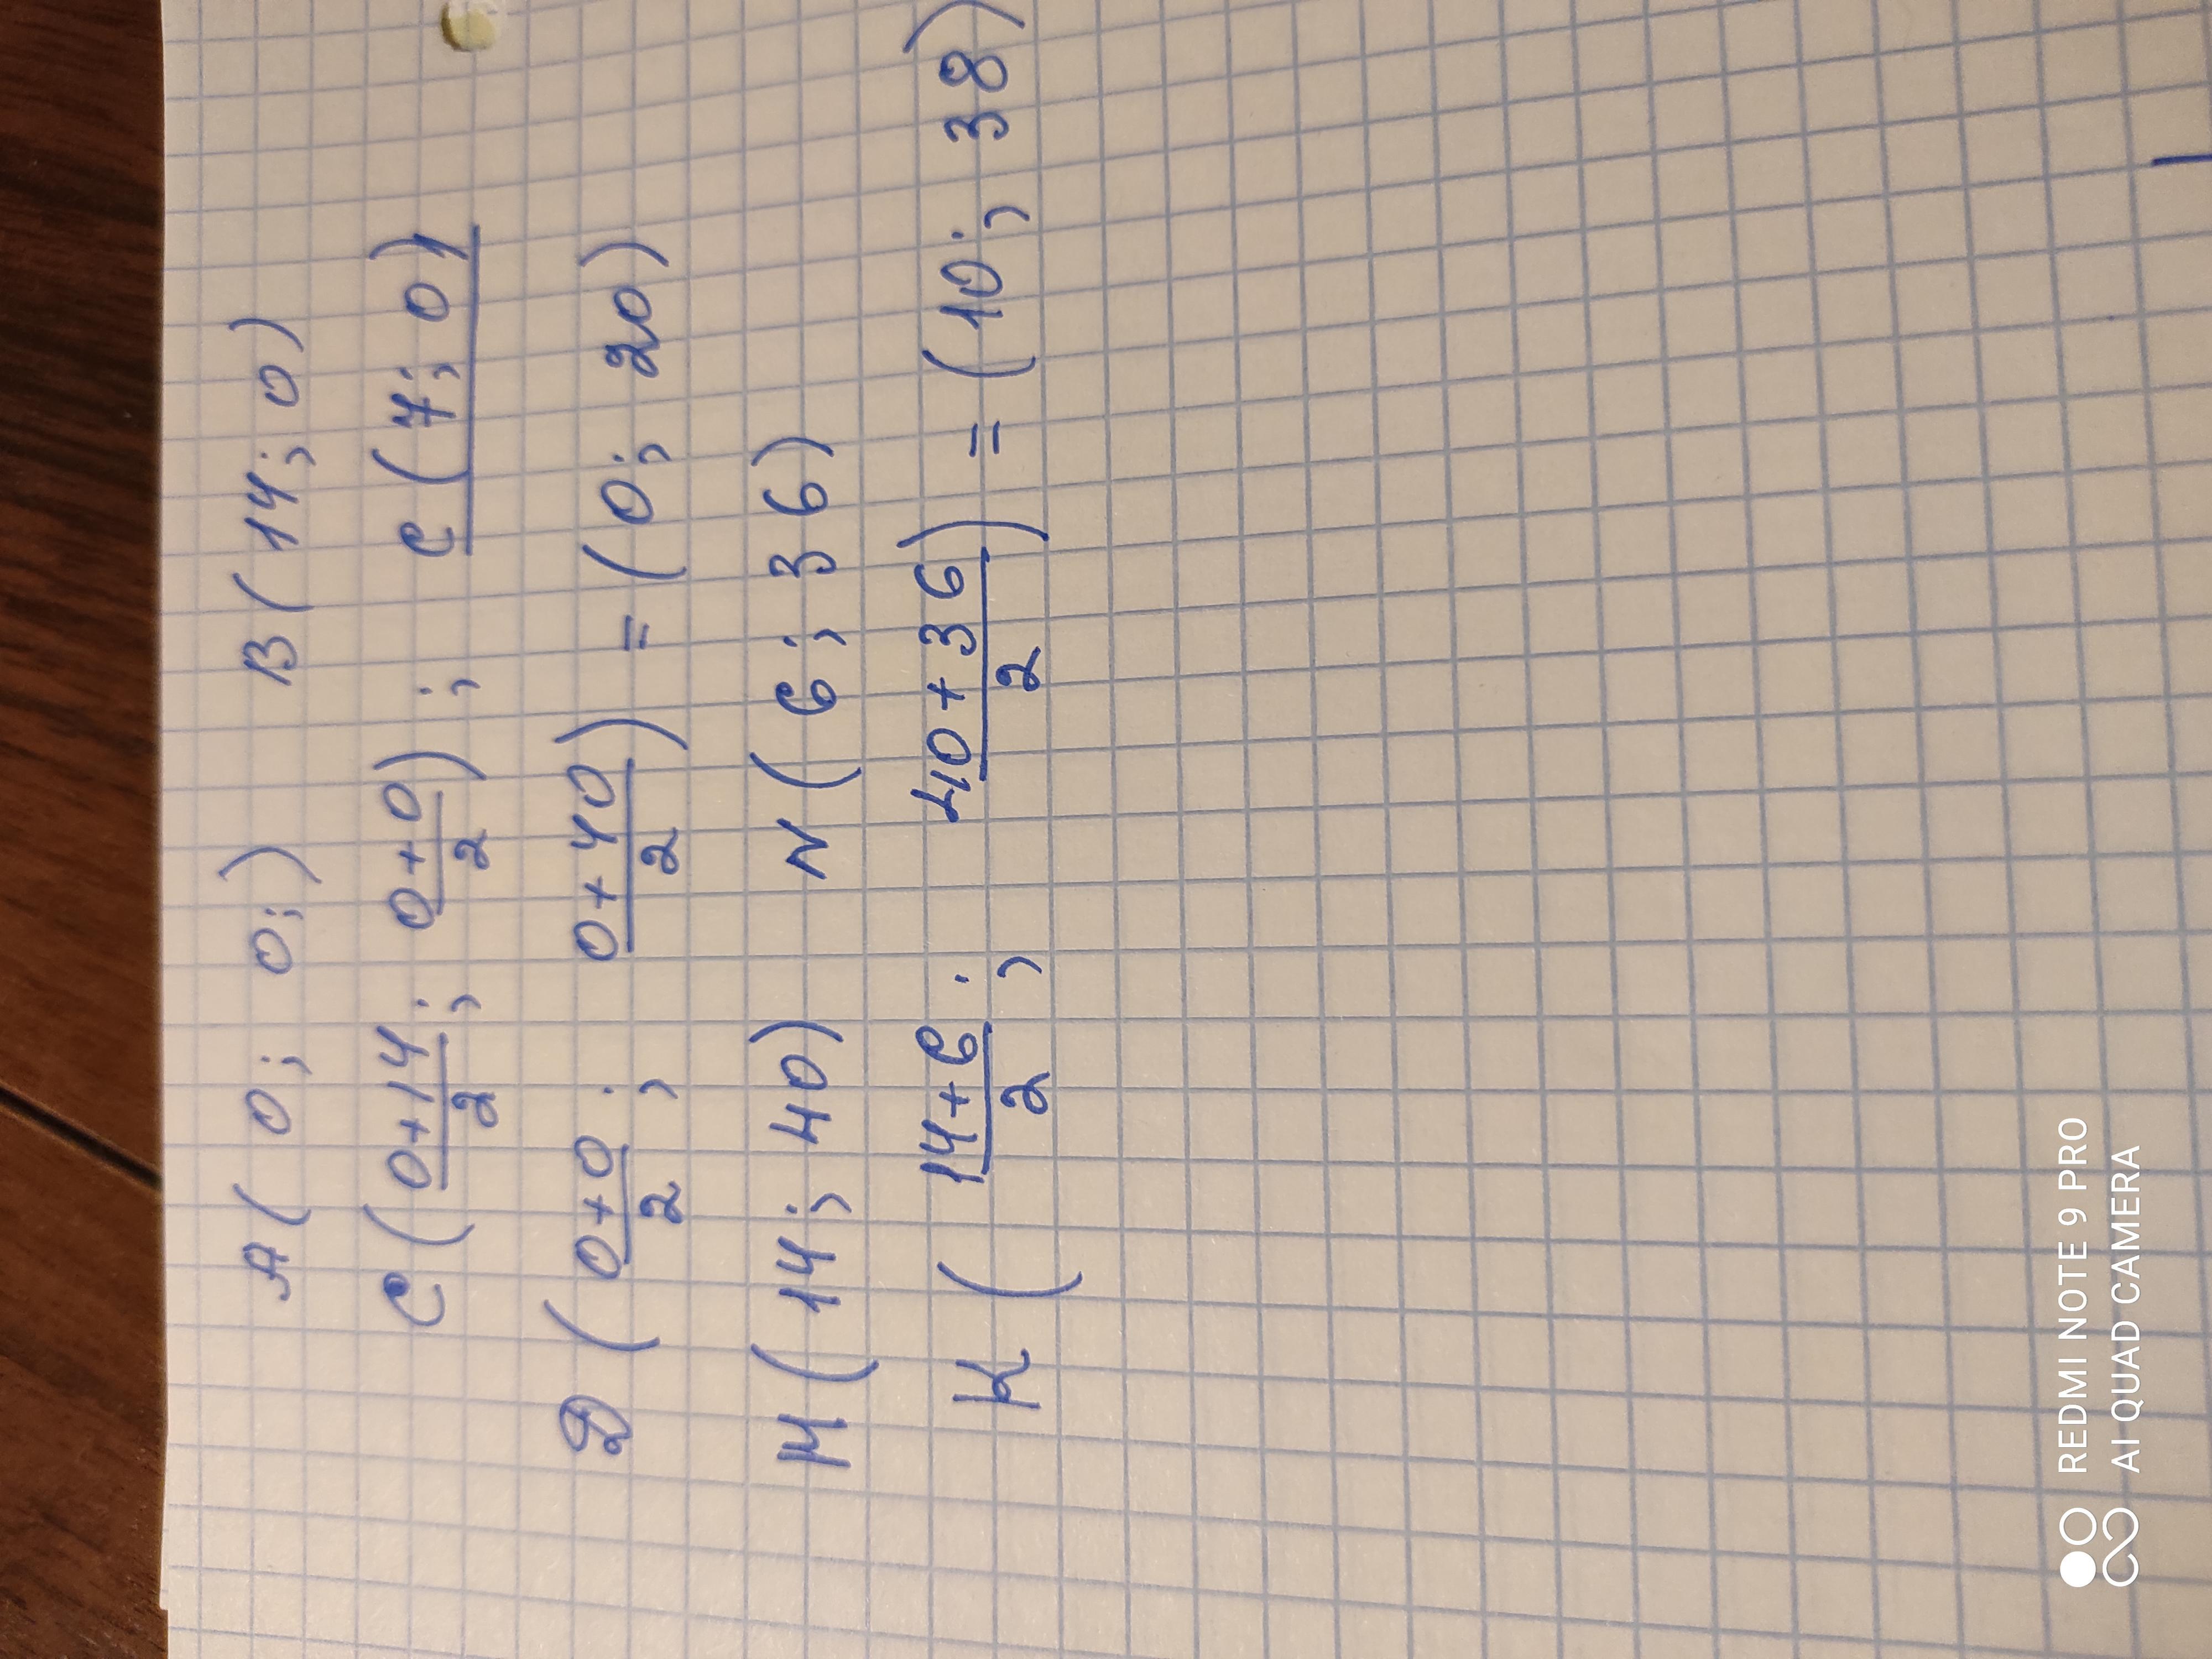 A ( 0 ; 0 ; )  B ( 14 ; 0 )
C ( \frac{0+14}{2} ; \frac{0+0}{2} ) ; C ( 7 ; 0 )
D ( \frac{0+0}{2} ; \frac{0+40}{2} ) = ( 0 ; 20 )
M ( 14 ; 40 )  N ( 6 ; 36 )
K ( \frac{14+6}{2} ; \frac{40+36}{2} ) = ( 10 ; 38 )
REDMI NOTE 9 PRO
AI QUAD CAMERA